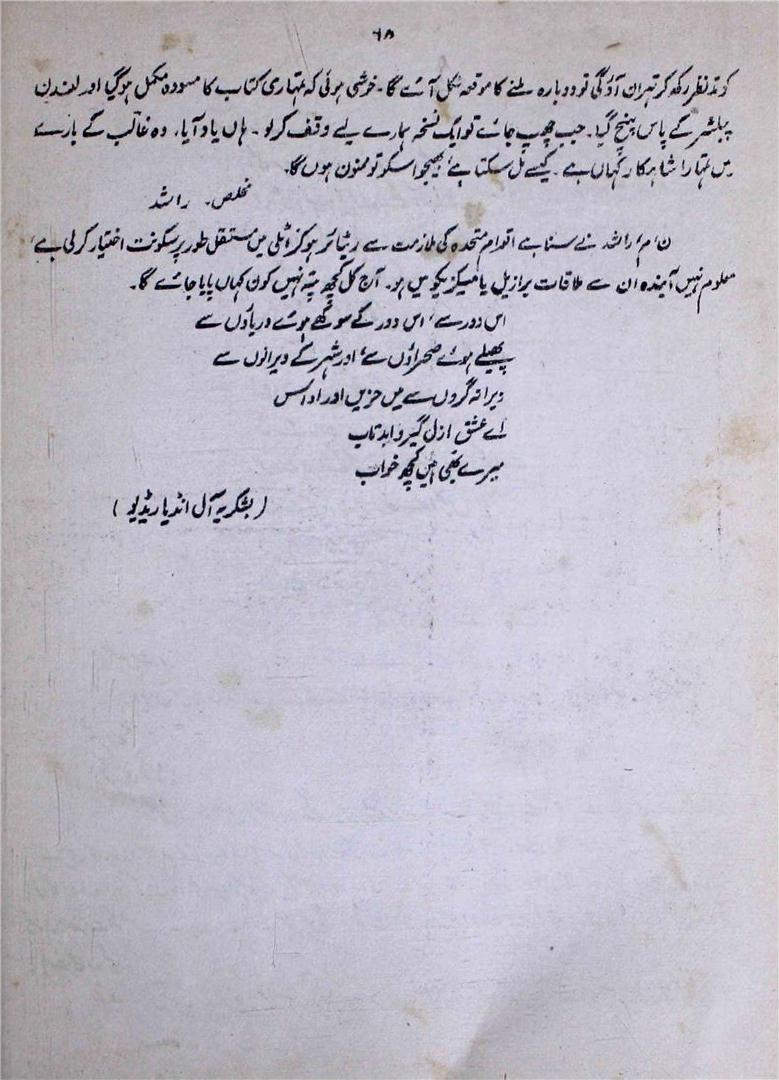 ۶۸
کو مدنظر رکھ کر تہران آؤ گی تو دوبارہ ملنے کا موقعہ نکل آئے گا۔ خوشی ہوئی کہ تمہاری کتاب کا مسودہ مکمل ہو گیا اور لندن
پبلشر کے پاس پہنچ گیا۔ جب چھپ جائے تو ایک نسخہ ہمارے لیے وقف کر لو۔ ہاں یاد آیا، وہ غالب کے بارے
میں تمہارا شاہکار کہاں ہے۔ کیسے مل سکتا ہے، بھجوا سکو تو ممنون ہوں گا۔
مخلص۔ راشد
ن، م، راشد نے سنا ہے اقوام متحدہ کی ملازمت سے ریٹائر ہو کر اٹلی میں مستقل طور پر سکونت اختیار کر لی ہے،
معلوم نہیں آیندہ ان سے ملاقات برازیل یا میکزیکو میں ہو۔ آج کل کچھ پتہ نہیں کون کہاں پایا جائے گا۔
اس دور سے، اس دور کے سوکھے ہوئے دریاؤں سے
پھیلے ہوئے صحراؤں سے، اور شہر کے ویرانوں سے
ویرانہ گروں سے میں حزیں اور اداس
اے عشق ازل گیر و ابد تاب
میرے بھی ہیں کچھ خواب
(بشکریہ آل انڈیا ریڈیو)